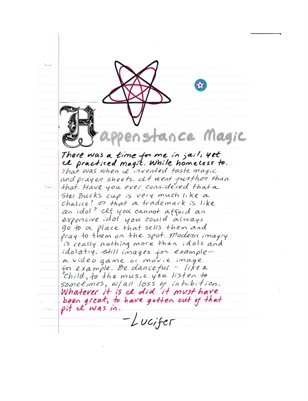 Happenstance Magic
There was a time for me in jail, yet
I practiced magic. While homeless to.
That was when I invented taste magic
and prayer sheets. It went further than
that. Have you ever considered that a
Star Bucks cup is very much like a
chalice? or that a trademark is like
an idol? If you cannot afford an
expensive idol you could always
go to a place that sells them and
pray to them on the spot. Modern imagry
is really nothing more than idols and
idolatry. Still images for example-
a video game or movie image
for example. Be danceful - like a
child, to the music you listen to
sometimes, w/all loss of inhibition.
Whatever it is I did it must have
been great, to have gotten out of that
pit I was in.
-Lucifer